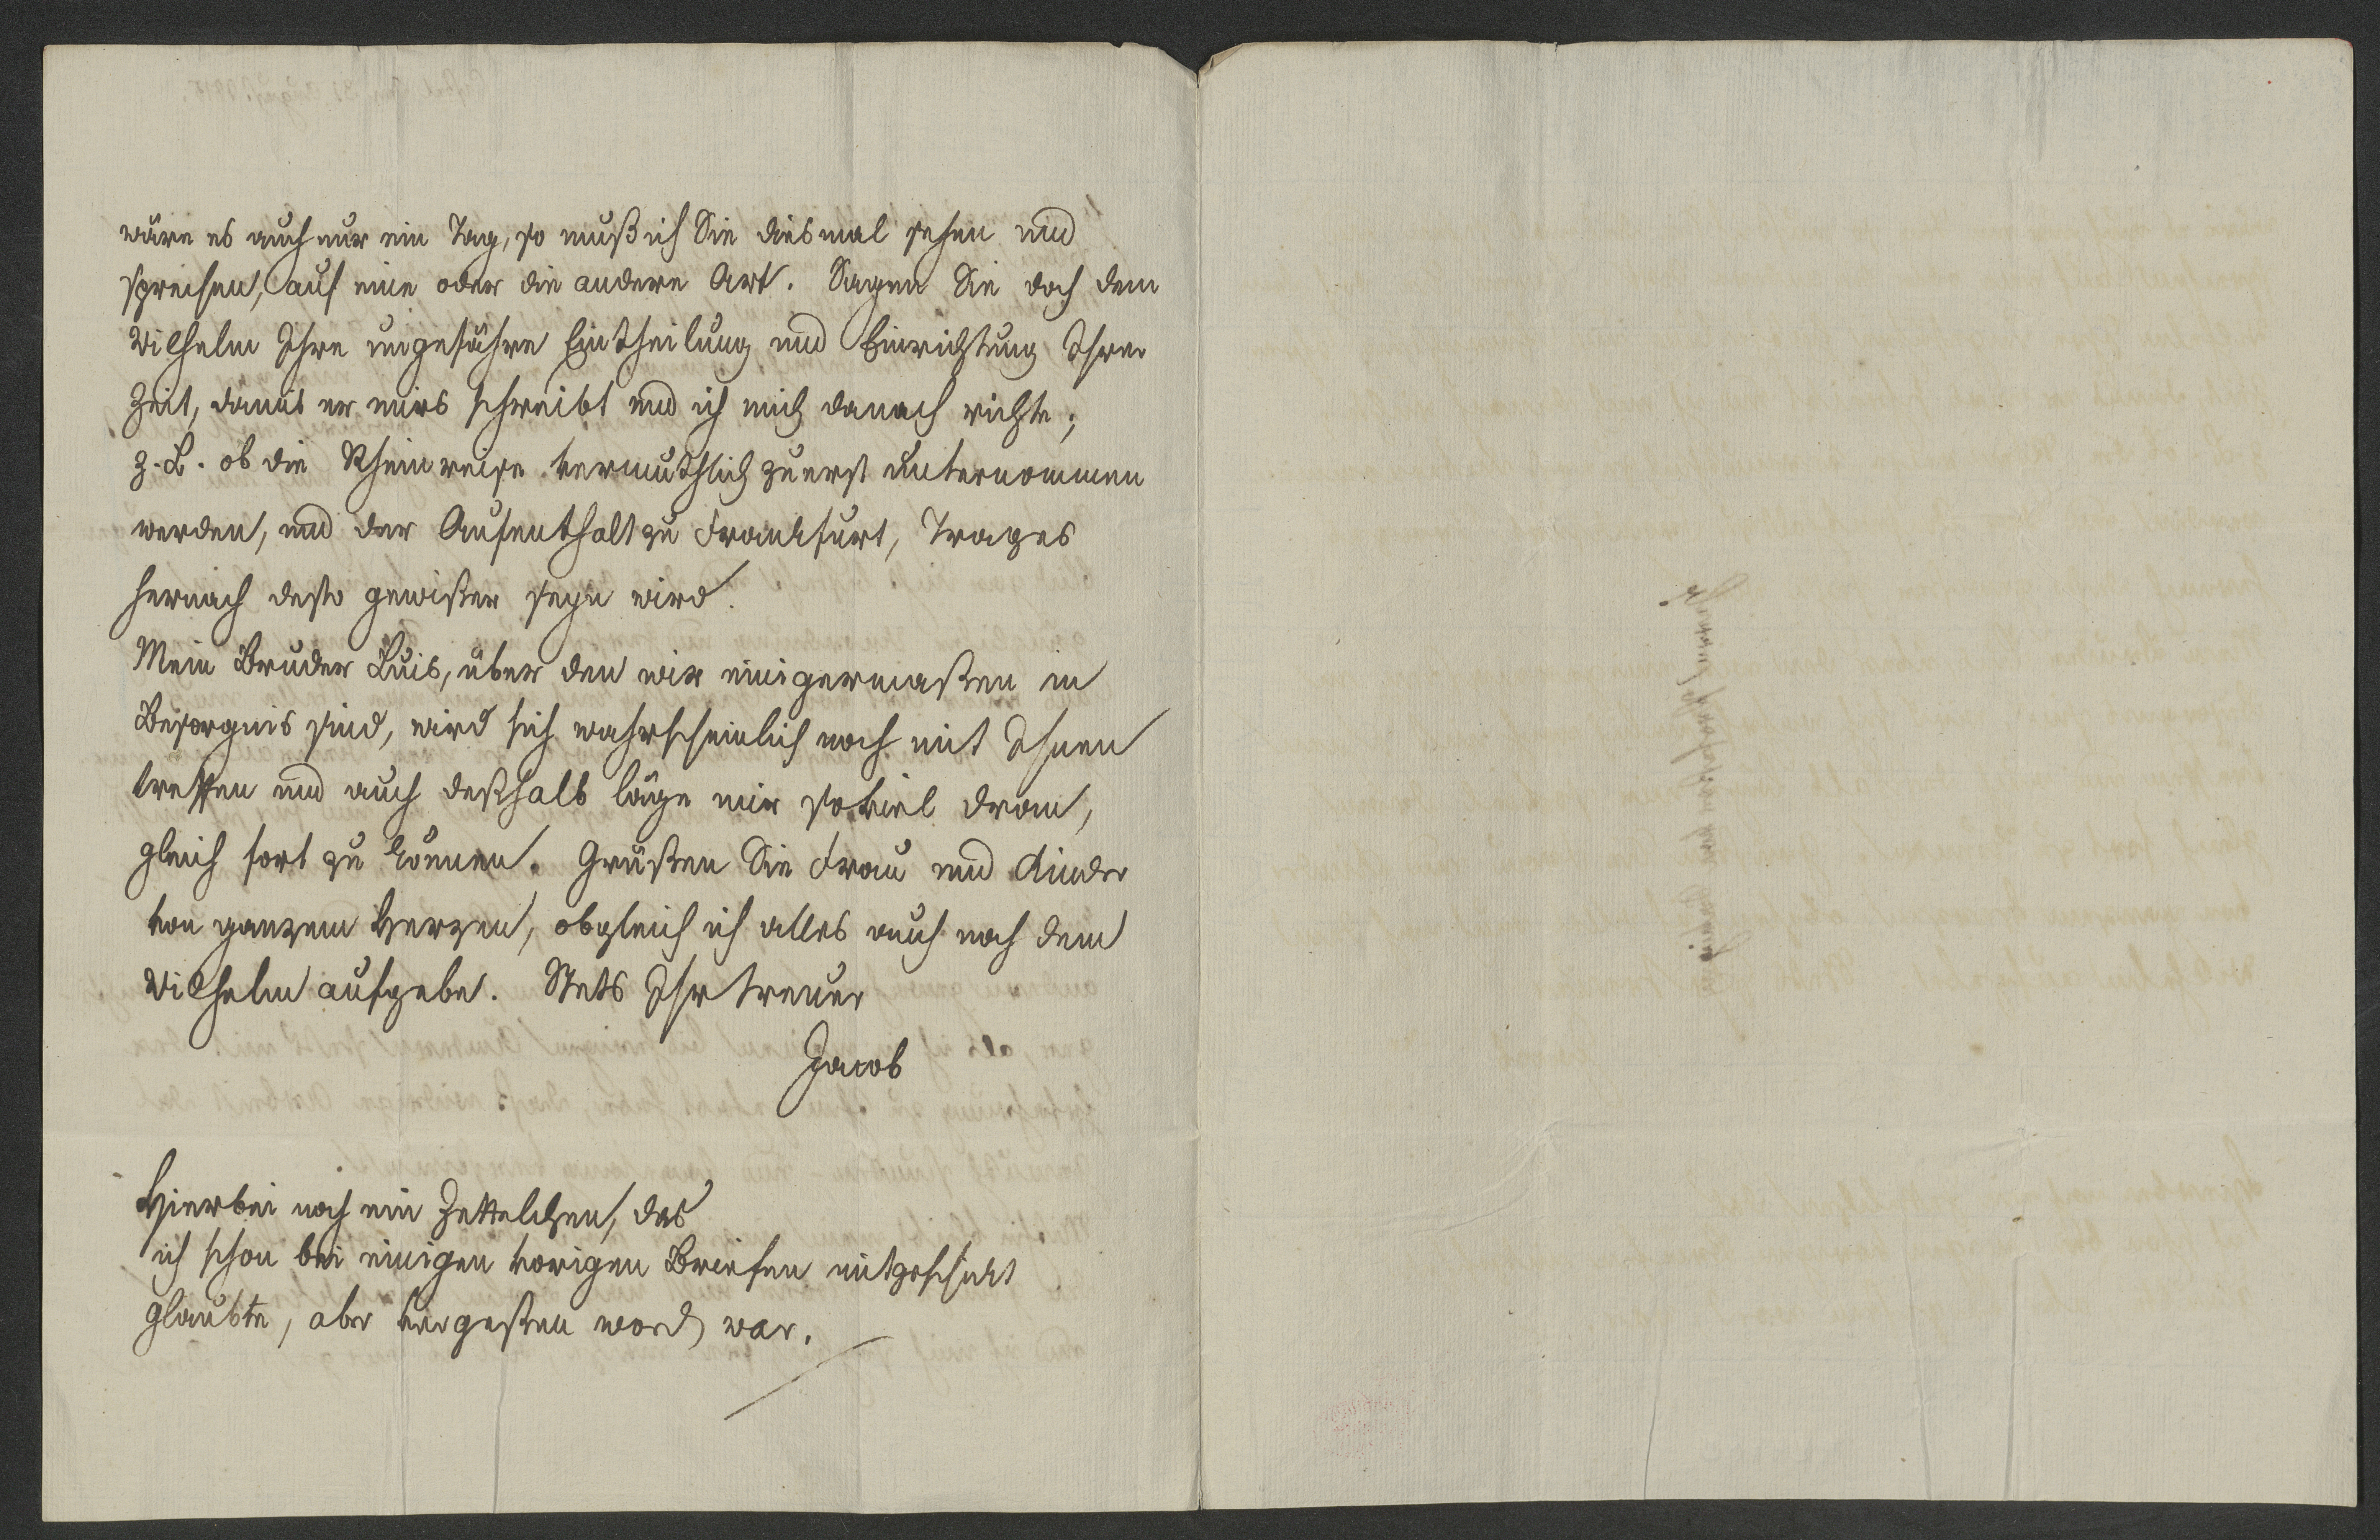 wäre es auch nur ein Tag, so muß ich Sie diesmal sehen und
sprechen, auf eine oder die andere Art. Sagen Sie doch dem
Wilhelm Ihre ungefähre Eintheilung und Einrichtung Ihrer
Zeit, damit er mirs schreibt und ich mich danach richte;
z. B. ob die Rheinreise vermuthlich zuerst unternommen
werden, und der Aufenthalt zu Frankfurt, Trages
hernach desto gewißer seyn wird.
Mein Bruder Luis, über den wir einigermaßen in
Besorgnis sind, wird sich wahrscheinlich noch mit Ihnen
treffen und auch deßhalb läge mir soviel dran,
gleich fort zu können. Grüßen Sie Frau und Kinder
von ganzem Herzen, obgleich ich alles auch noch dem
Wilhelm aufgebe. Stets Ihr treuer
Jacob
Hierbei noch ein Zettelchen, das
ich schon bei einigen vorigen Briefen mitgeschickt
glaubte, aber vergeßen word war.